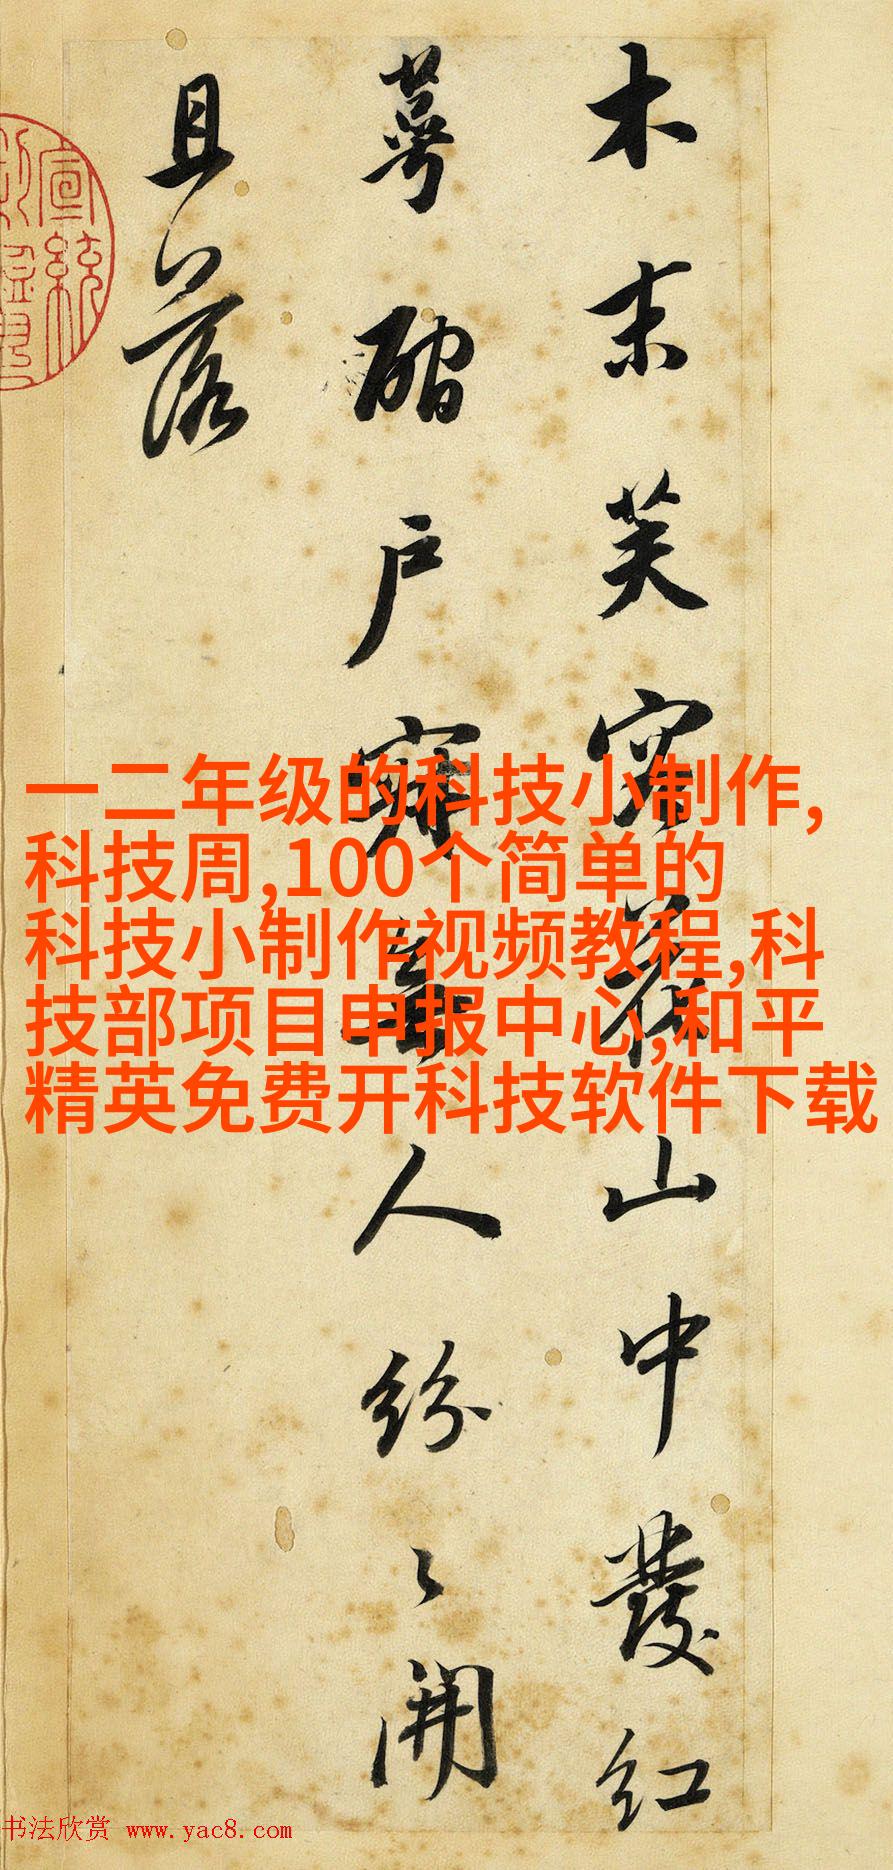 木末芙容花山中發紅
萼㵎戶寂無人紛〻開
且落
一二年级的科技小制作,
科技周,100个简单的
科技小制作视频教程,科
技部项目申报中心,和平
精英免费开科技软件下载
宣統
书法欣赏 www.yac8.com